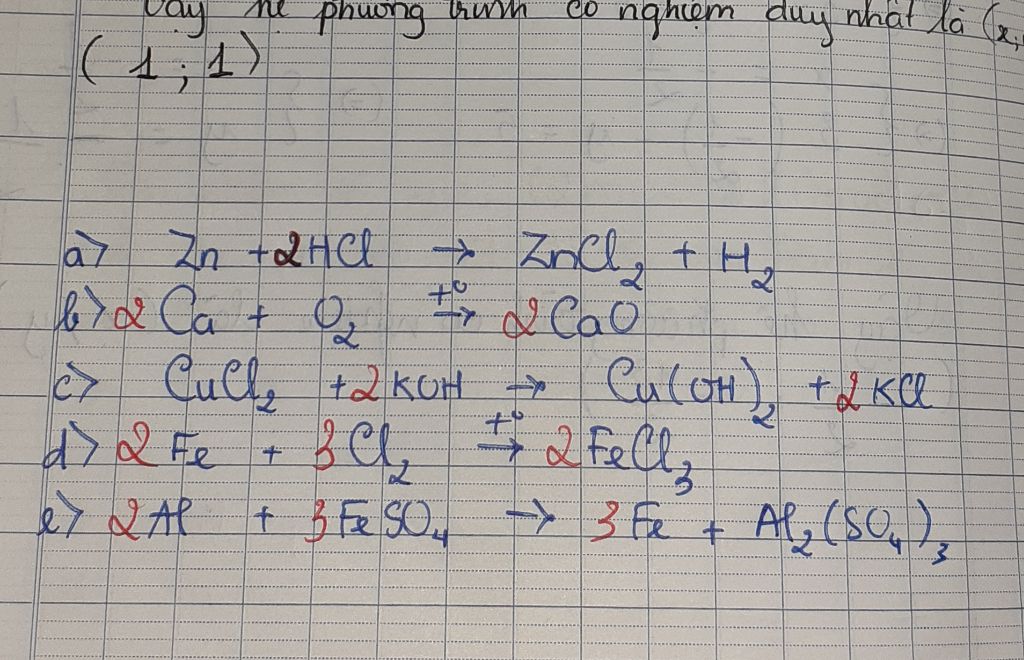 Vậy hệ phương trình có nghiệm duy nhất là (x;
(1;1)
a> Zn + 2HCl → ZnCl₂ + H₂
b> 2Ca + O₂ →(t°) 2CaO
c> CuCl₂ + 2KOH → Cu(OH)₂ + 2KCl
d> 2Fe + 3Cl₂ →(t°) 2FeCl₃
e> 2Al + 3FeSO₄ → 3Fe + Al₂(SO₄)₃